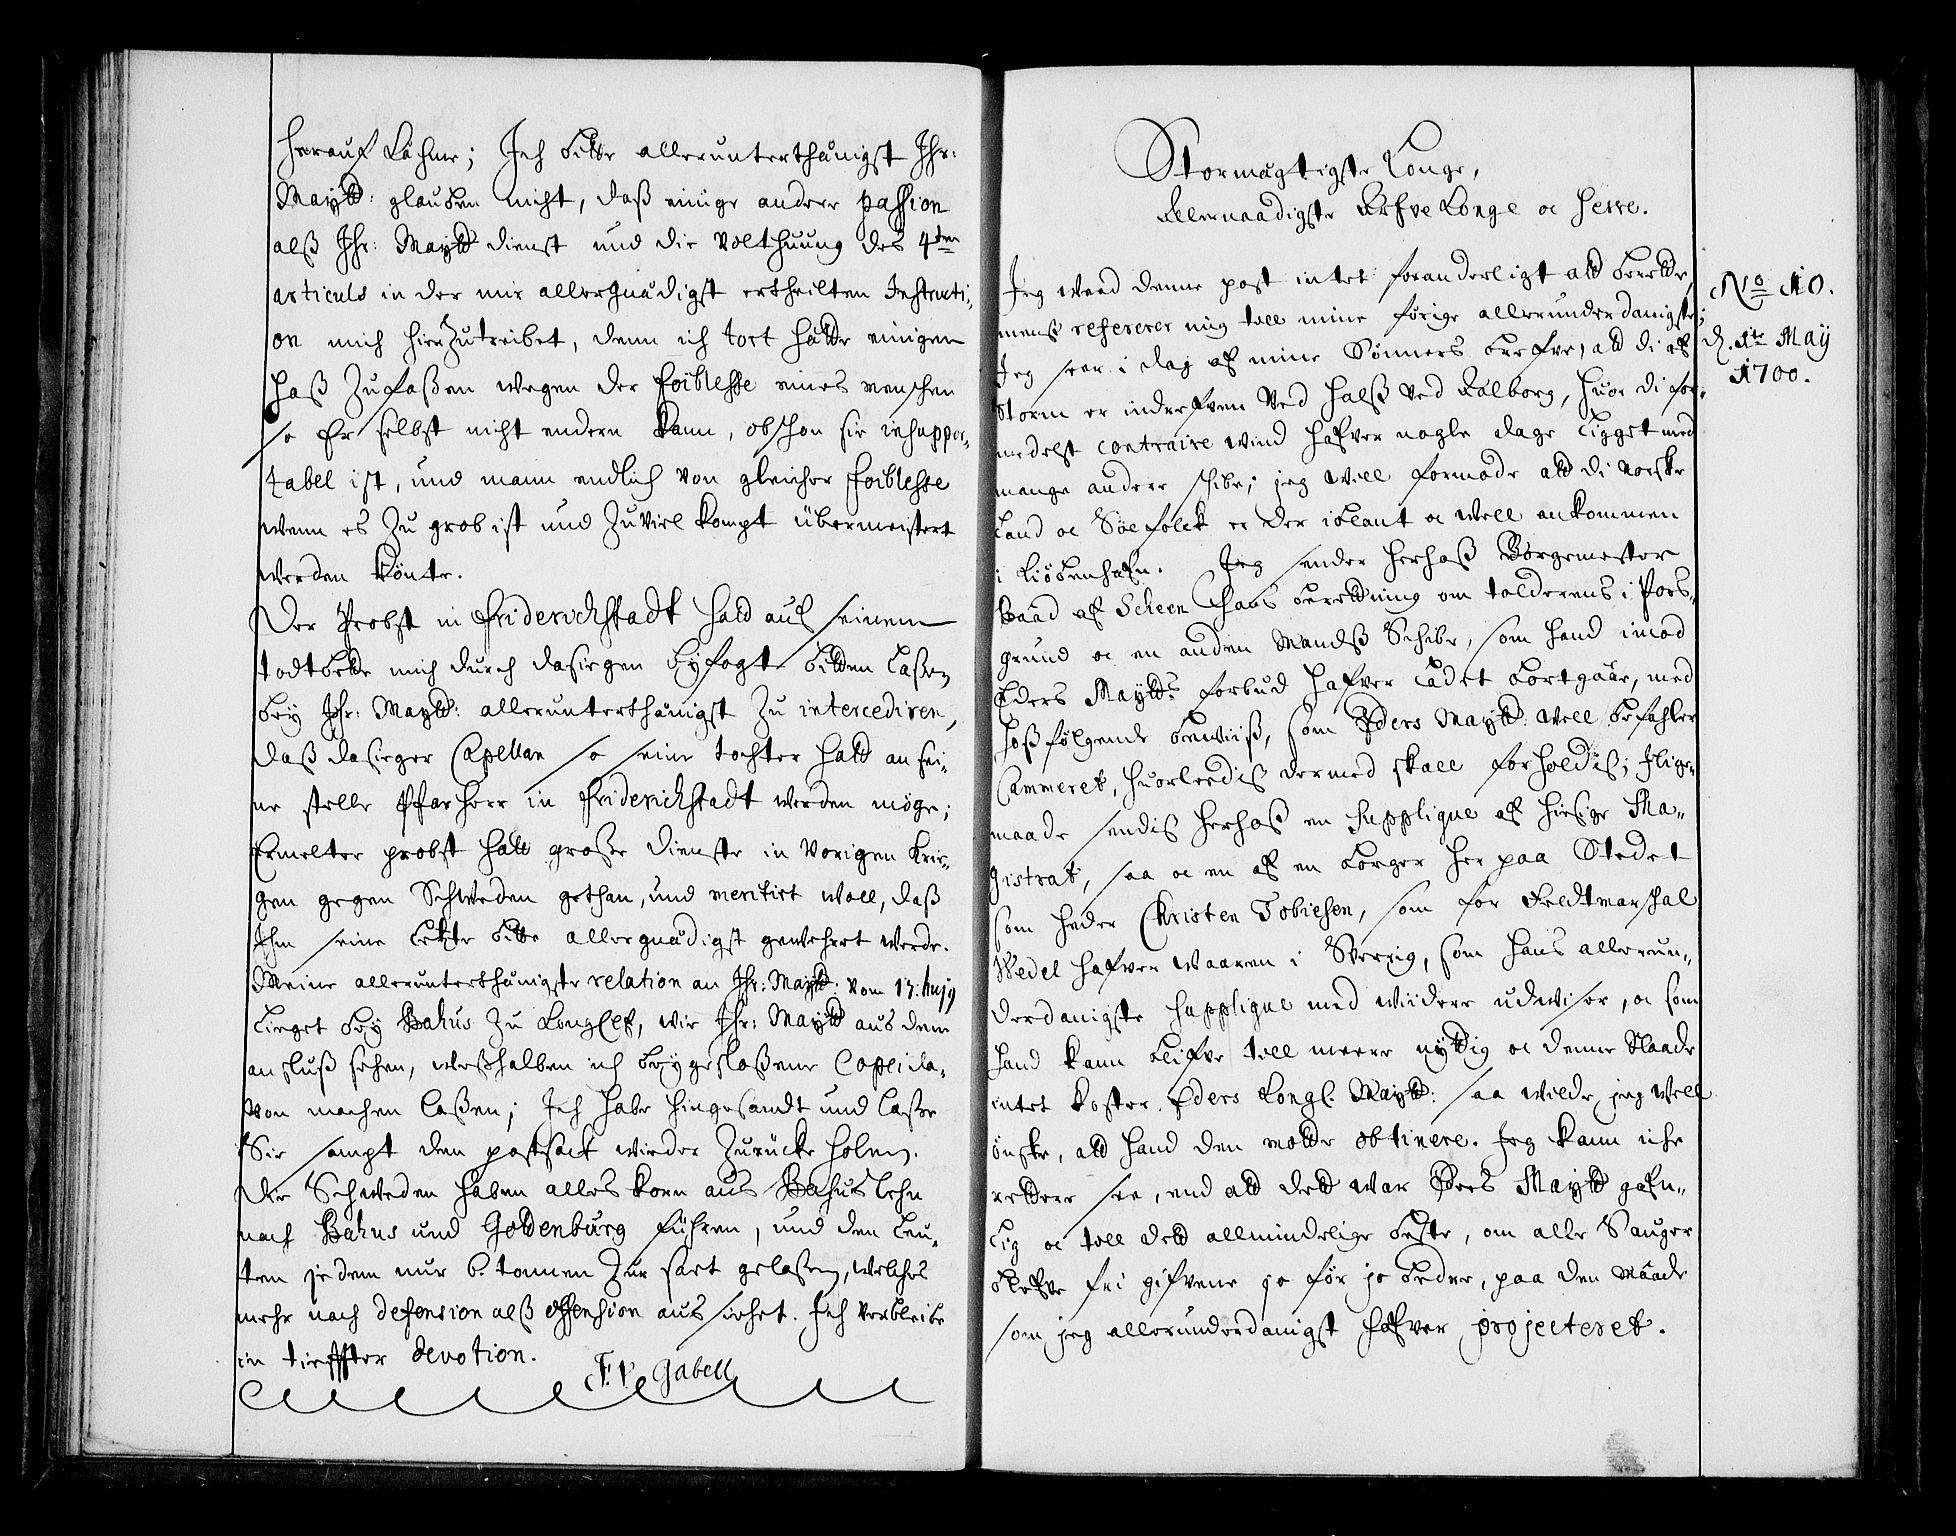 herauf kähme; Ich bitte allerunterthänigst Ihr:
Maytt: glauben nicht, daß einige andere passion
alß Ihr: Maytt dienst und die Volthuung des 4ten
articuls in der mir allergnädigst ertheilten Instructi,
on mich hierzu treibet, denn ich tort hätte einigen
haß zu faßen wegen der foiblesse eines menschen
so Er selbst nicht endern kann, obschon sie insuppor,,
tabel ist, und mann endlich von gleicher foiblesse
wenn es zu grob ist und zu viel kompt übermeistert
werden könte.
Der Probst in Friderichstadt hatt auf seinem
todtbette mich durch dasiegen byfogt bitten laßen
bey Ihr: Maytt: allerunterthänigst zu intercediren,
daß dasieger Capellan so seine tochter hatt an sei,
ne stelle Pfarherr in Friderichstadt werden möge;
Ermelter probst hatt große dienste in vorigen krie,
gen gegen Schweden gethan, und meritirt woll, daß
Ihm seine letzte bitte allergnädigst gewehret werde.
Meine allerunterthänigste relation an Ihr: Maytt: vom 17.
lieget bey Bahus zu Kongelf, wie Ihr: Maytt aus dem
anfluß sehen, weßhalben ich beygeslaßene Copei da,
von machen laßen; Ich habe hingesandt und laße
Sie sampt dem postsack wieder zurücke holen.
Die Schweden haben alles korn aus Bahus lehn
nach Bahus und Gottenburg führen, und den leu,
ten jedem nur 6. tonnen zur saet gelaßen, welches
mehr nach defension alß offension aus siehet. Ich verbleibe
in tieffster devotion.
F. V. Gabell
Stormägtigste Konge,
Allernaadigste Arfve Konge oc Herre.
No 10.
d. 1te May
1700.
Jeg weed denne post intet foranderligt att berette,
mens refererer mig till mine forige allerunderdanigste;
Jeg seer i dag af mine Sönners brefve, att di af
storm er indrefven ved Halß ved Aalborg, huor di for,,
medelst contraire wind hafver nogle dage ligget med
mange andere schibe; jeg well formode att di norske
land oc Söe folck er der iblant oc well ankommen
i Kiöbenhafn. Jeg sender herhoß Borgemester
Baad af Scheen hans berettning om tolderens i Pors,
grund oc en anden Mandß Schibe, som hand imod
Eders Maytts forbud hafver ladet bortgaae, med
hoßfölgende bewiiß, som Eders Maytt: well befahler
Cammeret, huorleedis dermed skall forholdis; Ilige,
maade sendis herhoß en supplique af hiesige Ma,,
gistrat, saa oc en af en borger her paa Stedet
som heder Christen Tobiesen, som for Feldtmarschal
Wedel hafver waaren i Sverrig, som hans allerun,,
derdanigste supplique med wiidere udwiser, oc som
hand kann blifve till meere nyttig oc denne Naade
intet koster Eders Kongl. Maytt: saa wilde jeg well
önske, att hand den motte obtinere. Jeg kann icke
rettere see, end att dett war Eders Maytt gafn,,
lig oc till dett allmindelige beste, om alle Sauger
blefve fri gifvene jo för jo bedre, paa den Maade
som jeg allerunderdanigst hafver projecteret.